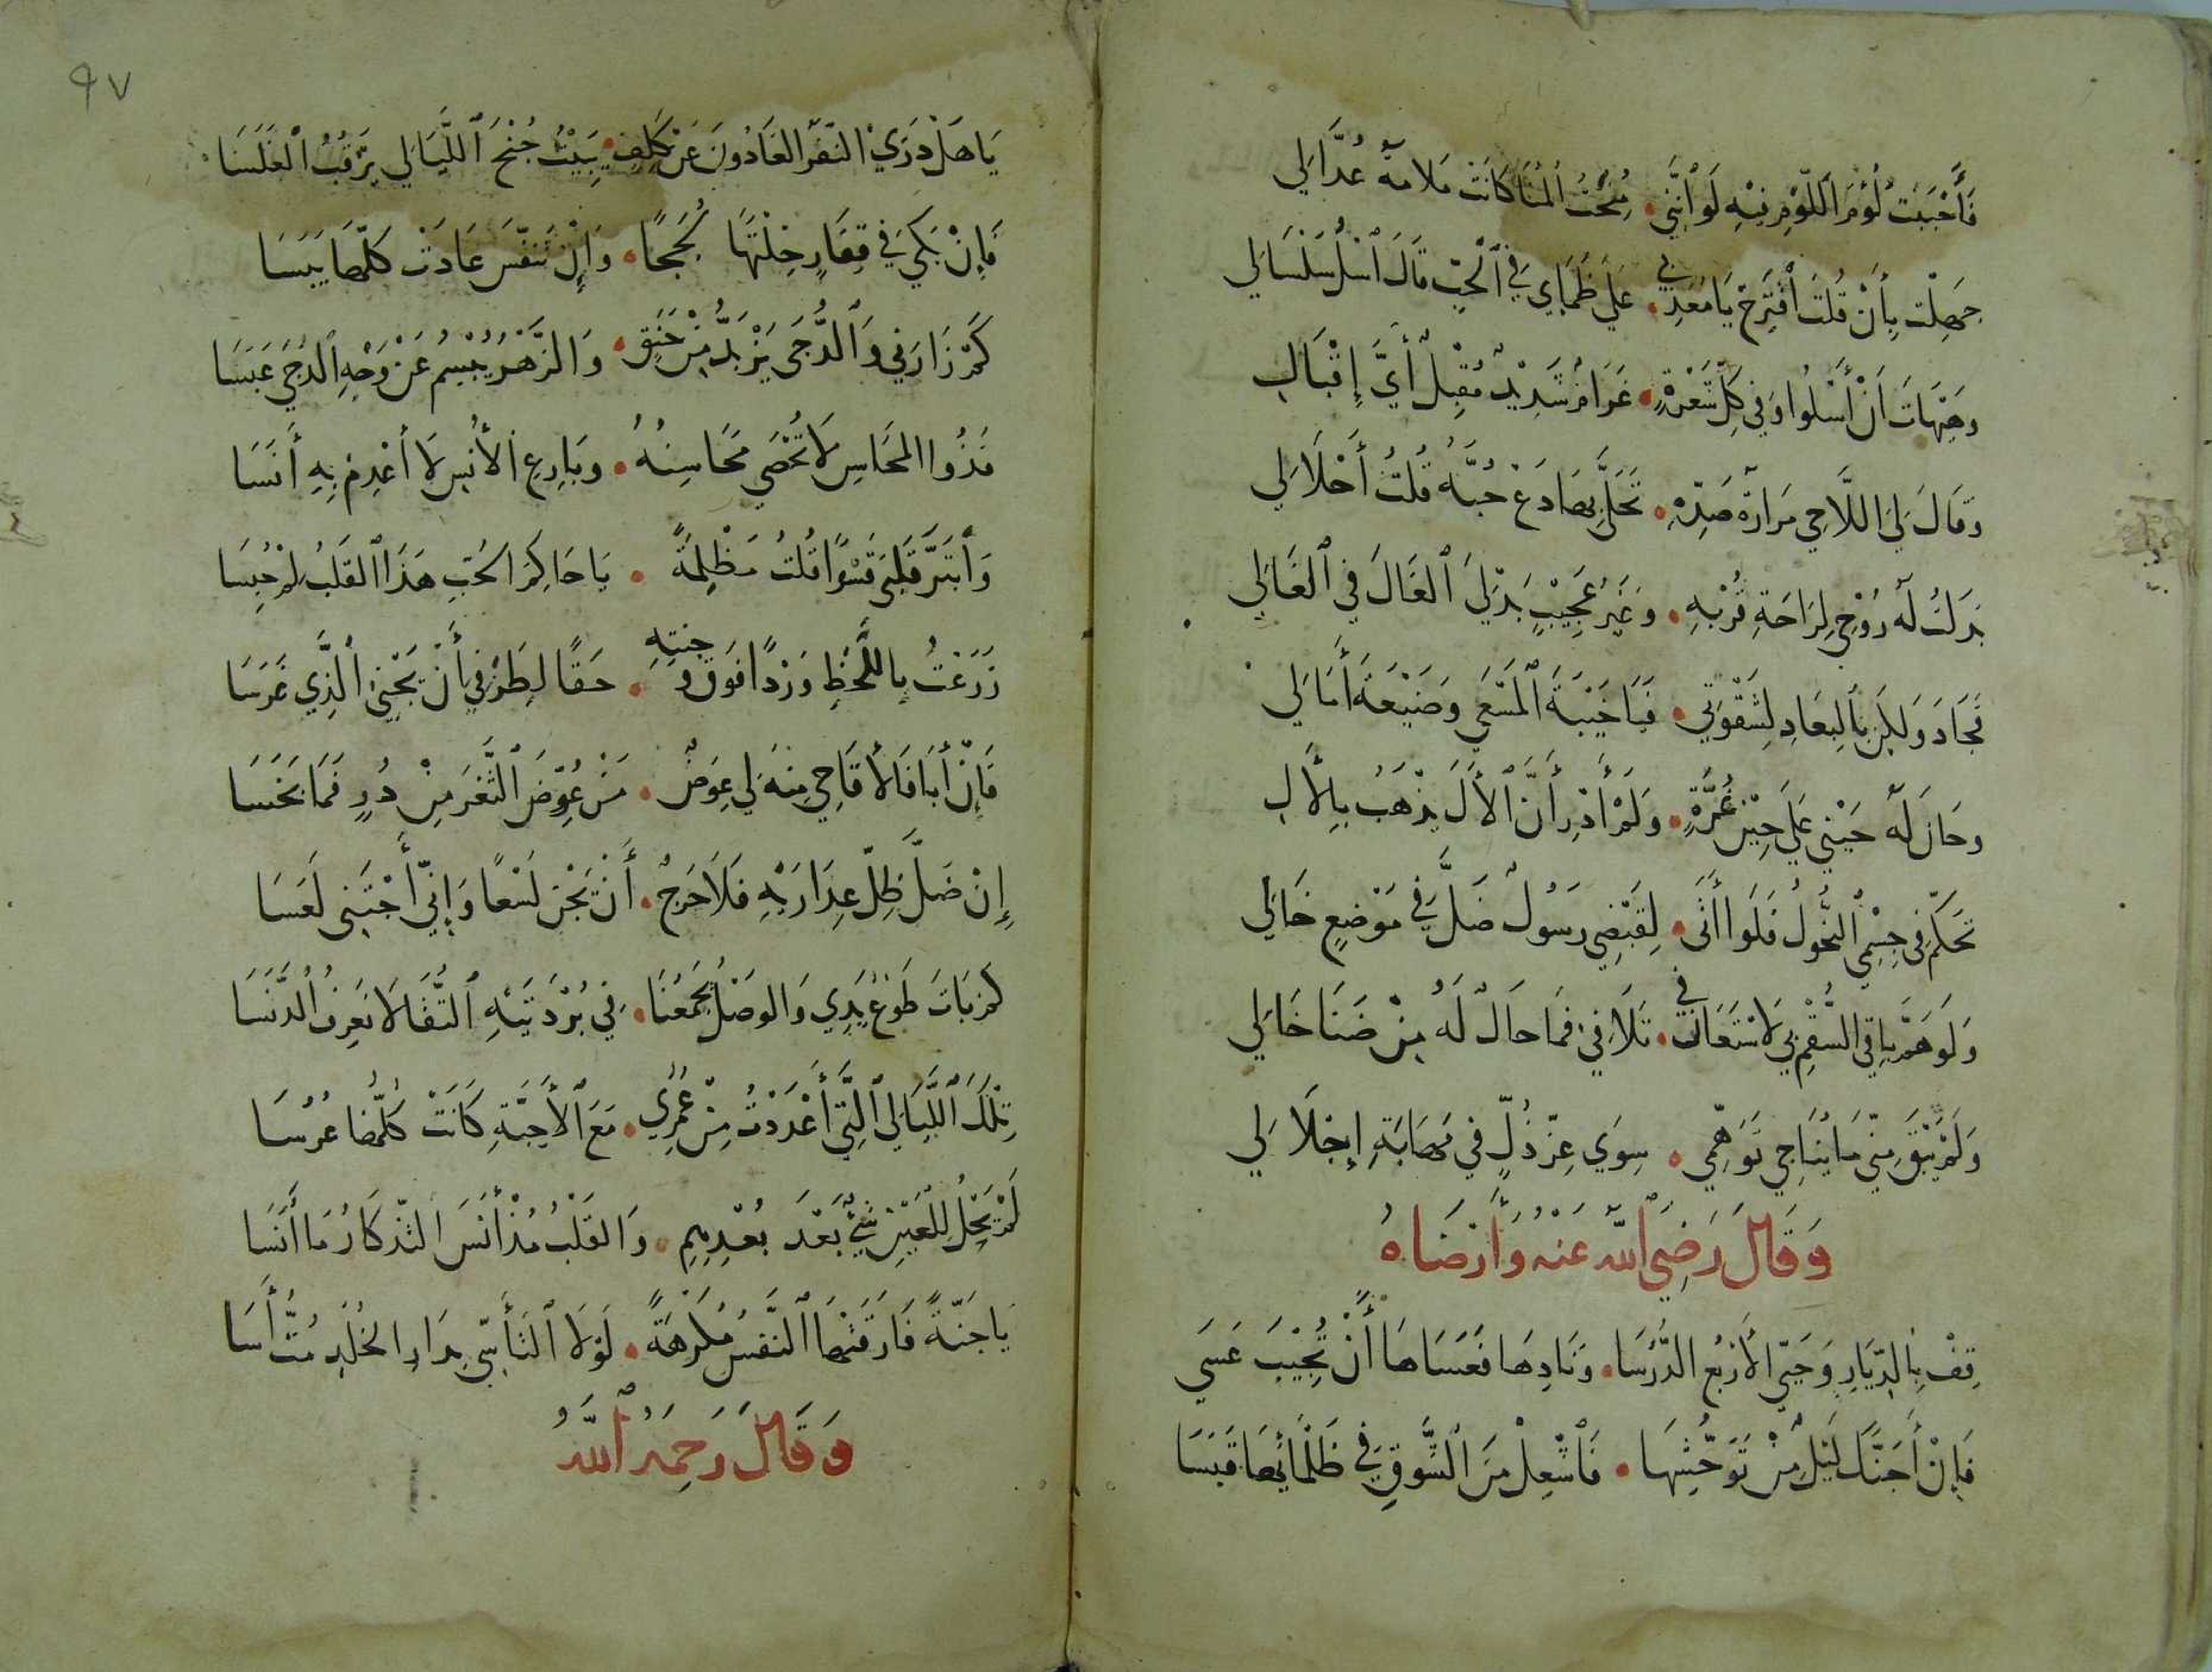 فَأَحْبَبْتُ لُؤْمَ اَللَّوْمِ فِيْهِ لَوْ اَنَّنِي • مُنِحْتُ اَلْمُنَا كَانَتْ مَلَامَةُ عُذَّالِي
جَهِلْتَ بِأَنْ قُلْتَ اُقْتَرِحْ يَا مُعَذِّبِي • عَلَيَّ ظَمَاي فِي اَلْحُبِّ قَالَ اُسْلُ سَلْسَالِي
وهَيْهَاتَ اَنْ أَسْلُوا وَفِي كُلِّ شَعْرَةٍ • غَرَامٌ شَدِيْدٌ مُقْبِلٌ أَيَّ إِقْبَالِ
وقَالَ لِيَ اللَّاحِي مَرَارَةُ صَدِّهِ • تَحَلَّى بِهَا دَعْ حُبَّهُ قُلْتُ أَحْلَا لِي
بَذَلْتُ لَهُ رُوْحِي لِرَاحَةِ قُرْبِهِ • وَغَيْرُ عَجِيْبٍ بَذْلِيَ اَلْغَالَ فِي اَلْغَالِي
فَجَادَ وَلَكِنْ بِاَلْبِعَادِ لِشَقْوَتِي • فَيَا خَيْبَةَ اَلْمَسْعَى وَضَيْعَةَ أَمَالِي
وحَانَ لَهُ حَيْنِي عَلَى حِيْنِ غُرَّةٍ • وَلَمْ أَدْرِ أَنَّ اَلْأَلَ يَذْهَبُ بِالْأَلِ
تَحَكَّمَ فِي جِسْمِي اُلنُّحُولُ فَلَوْ أَتَى • لِقَبْضِي رَسُولٌ ضَلَّ فِي مَوْضِعٍ خَالِي
وَلَوْ هَمَّ بَاقِي السُّقْمِ بِي لَاسْتَعَانَ فِي • تَلَافِي فَمَا حَالٌ لَهُ مِنْ ضَنَا خَالِي
وَلَمْ يَبْقَ مِنِّي مَا يُنَاجِي تَوَهُّمِي • سِوَى عِزِّ ذُلٍّ فِي مَهَابَةِ إِجْلَالِي
وَقَالَ رَضِيَ اَللَّهُ عَنْهُ وَأَرْضَاهُ
قِفْ بِالدِّيَارِ وَحَيِّ الأَرْبُعَ الدُّرُسَا • وَنَادِهَا فَعَسَاهَا أَنْ تُجِيْبَ عَسَى
فَإِنْ أَجَنَّكَ لَيْلٌ مِنْ تَوَحُّشِهَا • فَاَشْعِلْ مِنَ اَلشَّوْقِ فِي ظَلْمَائِهَا قَبَسَا
٩٧
يَا هَلْ دَرَى النَّفَرُ الغَادُونَ عَنْ كَلِفٍ • يَبِيْتُ جُنْحَ اَللَّيَالِي يَرْقُبُ اَلْغَلَسَا
فَإِنْ بَكَى فِي قِفَارٍ خِلْتَهَا لُجَجًا • وَإِنْ تَنَفَّسَ عَادَتْ كُلُّهَا يَبَسَا
كَمْ زَارَنِي وَاَلدُّجَى يَزْبَدُّ مِنْ حَنَقٍ • وَالزَّهْرُ يَبْسِمُ عَنْ وَجْهِ اَلدُّجَى عَبَسَا
فَذُوا المَحَاسِنِ لَا تُحْصَى مَحَاسِنُهُ • وَبَارِعُ اَلأُنْسِ لَا أَعْدِمْ بِهِ أَنَسَا
وَاَبْتَزَّ قَلْبِيَ قَسْرًا قُلْتُ مَظْلِمَةً • يَا حَاكِمَ الحُبِّ هَذَا اَلقَلْبُ لِمْ حُبِسَا
زَرَعْتُ بِاللَّحْظِ وَرْدًا فَوْقَ وَجْنَتِهِ • حَقًا لِطَرْفِي أَنْ يَجْنِي الَّذِي غَرَسَا
فَإِنْ أَبَا فَالأَقَاحِي مِنْهُ لِي عِوَضٌ • مَنْ عُوِّضَ الثَّغْرَ مِنْ دُرٍ فَمَا بَخَسَا
إِنْ ضَلَّ ظِلُّ عِذَارَيْهِ فَلَا حَرَجٌ • أَنْ يَجْنِ لَسْعًا وَإِنِّي أَجْتَنِي لَعَسَا
كَمْ بَاتَ طَوْعَ يَدِي وَالوَصْلُ يَجْمَعُنَا • فِي بُرْدَتَيْهِ اَلتُّقَا لَا نَعْرِفُ الدَّنَسَا
تِلْكَ اَللَّيَالِي اَلَّتِي أَعْدَدْتُ مِنْ عُمْرِي • مَعَ اَلأَحِبَّةِ كَانَتْ كُلُّهَا عُرُسَا
لَمْ يَحْلُ لِلْعَيْنِ شَيْءٌ بَعْدَ بُعْدِهِمِ • وَالقَلْبُ مُذْ أَنَسَ التَّذْكَارُ مَا أَنَسَا
يَا جَنَّةً فَارَقَتْهَا اَلنَّفْسُ مُكْرَهَةً • لَوْلَا اَلتَّأَسِّي بِدَارِ الخُلْدِ مُتُّ أَسَا
وَقَالَ رَحِمَهُ اَللَّهُ